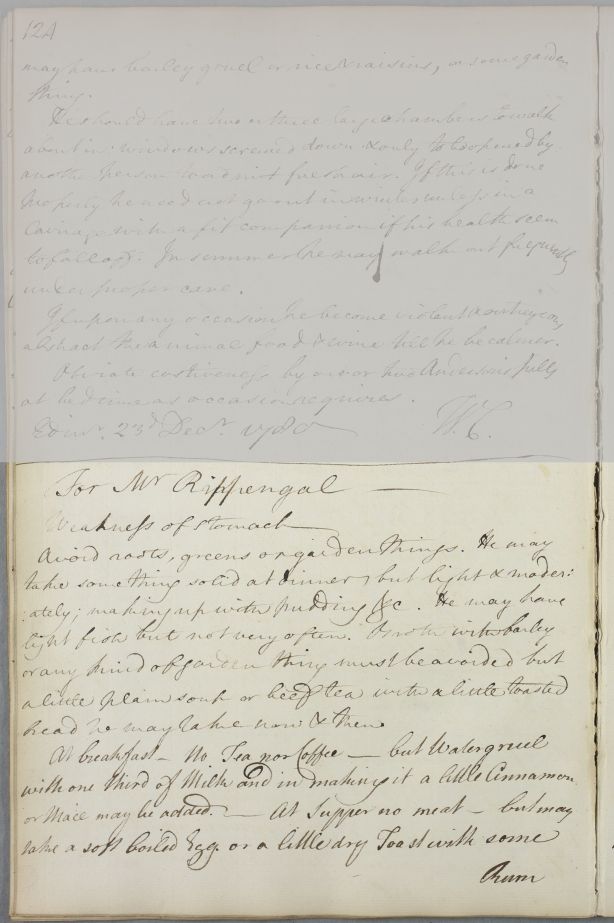 124
may have barley gruel or rice & raisins, or some garden
thing.
He should have two or three large chambers to walk
about in: windows screwed down & only to be opened by
another person to admit fresh air. If this is done
properly he need not go out in winter unless in a
Carriage with a fit companion if his health seem
to fall off: In summer he may walk out frequently
under proper care.
If upon any occasion he become violent & outrageous
abstract the animal food & wine till he be calmer.
Obviate costiveness by one or two Andersons pills
at bedtime as occasion requires.
Edinr. 23d Decr. 1780 W.C.
For Mr Rippengal
Weakness of stomach
Avoid roots, greens or garden things. He may
take something solid at dinner, but light & moder:
:ately; making up with pudding &c. He may have
light fish but not very often. Broth with barley
or any kind of garden thing must be avoided but
a little plain soup or beef tea with a little toasted
bread he may take now & then
At breakfast - No Tea nor Coffee - but Watergruel
with one third of Milk and in making it a little Cinnamon
or Mace may be added. - At Supper no meat - but may
take a soft boiled Egg or a little dry Toast with some
Rum